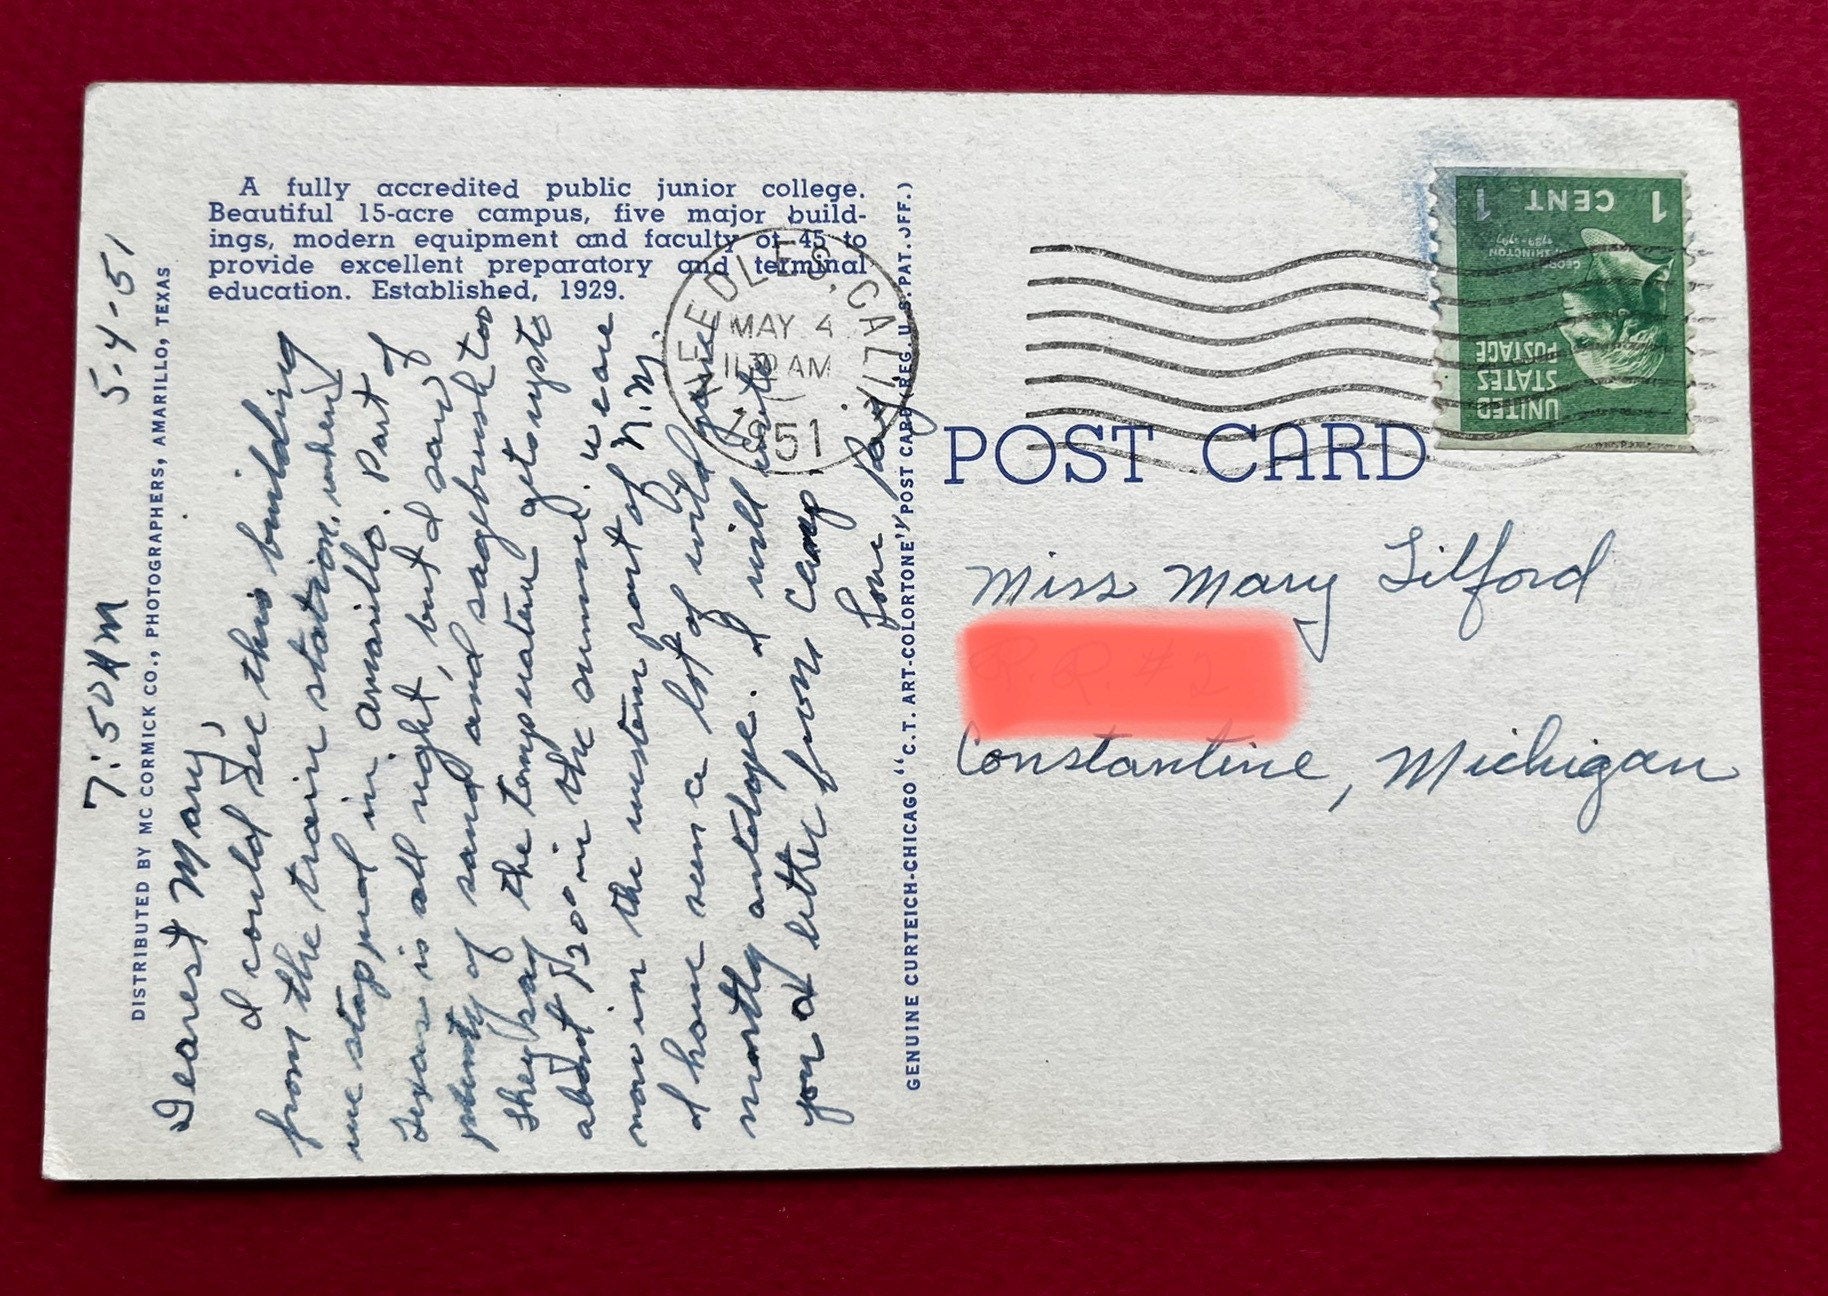 A fully accredited public junior college.
Beautiful 15-acre campus, five major build-
ings, modern equipment and faculty of 45 to
provide excellent preparatory and terminal
education. Established, 1929.
DISTRIBUTED BY MC CORMICK CO., PHOTOGRAPHERS, AMARILLO, TEXAS
7:50 AM 5-4-51
Dearest Mary,
I could see this building
from the train station, when
we stopped in Amarillo. Part of
Texas is all right, but I saw
plenty of sand and sagebrush too
They say the temperature gets up to
about 120° in the summer. We are
now in the western part of N.M.
I have seen a lot of wild game
mostly antelope. I will write
you a letter from camp.
Love Ray
GENUINE CURTEICH-CHICAGO "C.T. ART-COLORTONE" POST CARD (REG. U.S. PAT. OFF.)
NEEDLES, CALIF.
MAY 4
AM
1951
1 CENT 1
GEORGE
WASHINGTON
1789-1797
UNITED
STATES
POSTAGE
POST CARD
Miss Mary Tilford
R. R. #2
Constantine, Michigan